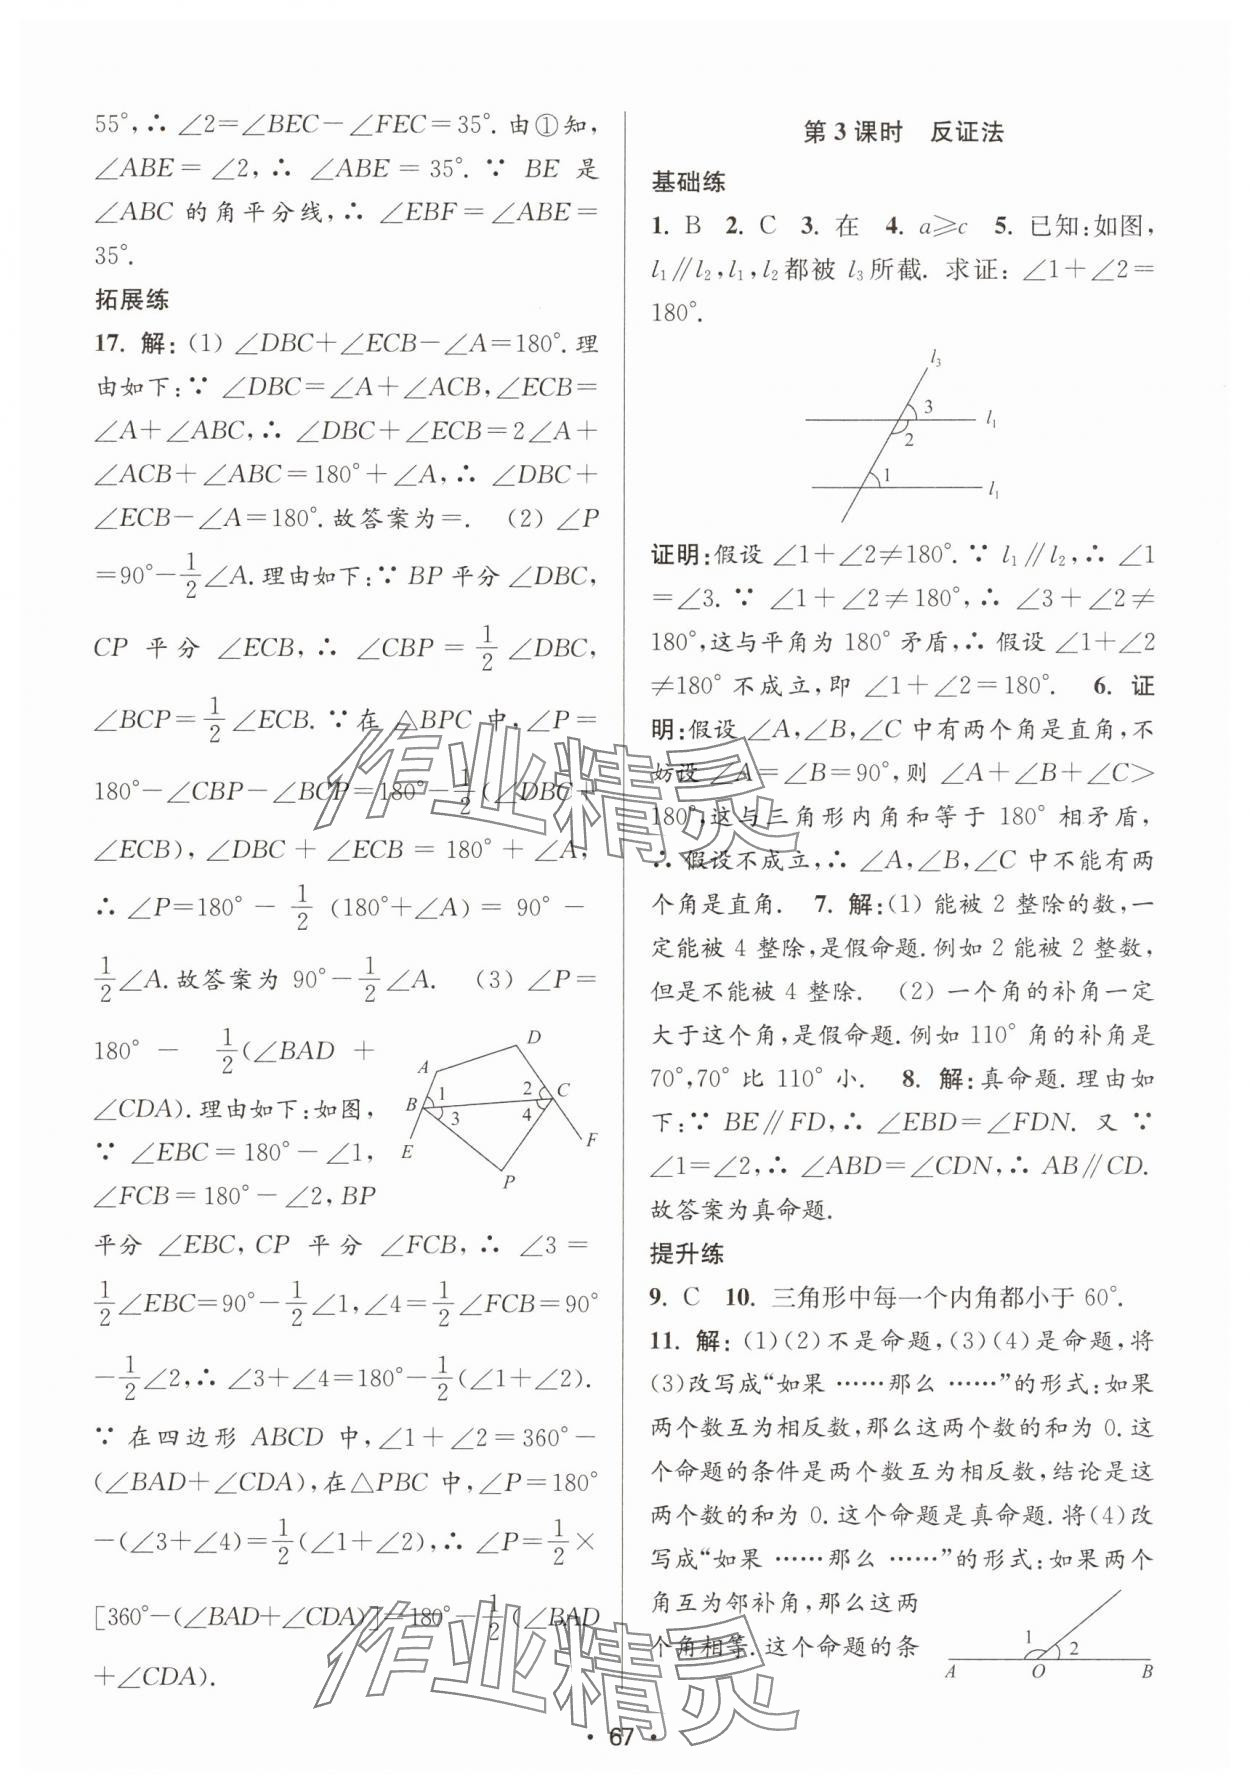 55°,∴ ∠2=∠BEC-∠FEC=35°.由①知,
∠ABE=∠2,∴ ∠ABE=35°.∵ BE 是
∠ABC 的角平分线,∴ ∠EBF=∠ABE=
35°.
拓展练
17. 解:(1) ∠DBC+∠ECB-∠A=180°.理
由如下:∵ ∠DBC=∠A+∠ACB,∠ECB=
∠A+∠ABC,∴ ∠DBC+∠ECB=2∠A+
∠ACB+∠ABC=180°+∠A,∴ ∠DBC+
∠ECB-∠A=180°.故答案为=. (2) ∠P
=90°-1/2∠A.理由如下:∵ BP 平分∠DBC,
CP 平分 ∠ECB,∴ ∠CBP=1/2∠DBC,
∠BCP=1/2∠ECB.∵在 △BPC 中,∠P=
180°-∠CBP-∠BCP=180°-1/2(∠DBC+
∠ECB),∠DBC+∠ECB=180°+∠A,
∴ ∠P=180°-1/2(180°+∠A)=90°-
1/2∠A.故答案为 90°-1/2∠A. (3) ∠P=
180°-1/2(∠BAD+
∠CDA).理由如下:如图,
∵ ∠EBC=180°-∠1,
∠FCB=180°-∠2,BP
A
D
B
1
2
C
3
4
E
F
P
平分 ∠EBC,CP 平分 ∠FCB,∴ ∠3=
1/2∠EBC=90°-1/2∠1,∠4=1/2∠FCB=90°
-1/2∠2,∴∠3+∠4=180°-1/2(∠1+∠2).
∵ 在四边形 ABCD 中,∠1+∠2=360°-
(∠BAD+∠CDA),在△PBC 中,∠P=180°
-(∠3+∠4)=1/2(∠1+∠2),∴ ∠P=1/2×
[360°-(∠BAD+∠CDA)]=180°-1/2(∠BAD
+∠CDA).
第 3 课时 反证法
基础练
1. B 2. C 3. 在 4. a⩾c 5. 已知:如图,
l₁∥l₂,l₁,l₂都被 l₃所截. 求证:∠1+∠2=
180°.
l₃
3
l₁
2
1
l₁
证明:假设 ∠1+∠2≠180°.∵ l₁∥l₂,∴ ∠1
=∠3.∵ ∠1+∠2≠180°,∴ ∠3+∠2≠
180°,这与平角为 180°矛盾,∴ 假设 ∠1+∠2
≠180°不成立,即 ∠1+∠2=180°. 6. 证
明:假设 ∠A,∠B,∠C 中有两个角是直角,不
妨设 ∠A=∠B=90°,则 ∠A+∠B+∠C>
180°,这与三角形内角和等于 180°相矛盾,
∴ 假设不成立,∴ ∠A,∠B,∠C 中不能有两
个角是直角. 7. 解:(1) 能被 2 整除的数,一
定能被 4 整除,是假命题.例如 2 能被 2 整数,
但是不能被 4 整除. (2) 一个角的补角一定
大于这个角,是假命题.例如 110°角的补角是
70°,70°比 110°小. 8. 解:真命题.理由如
下:∵ BE∥FD,∴ ∠EBD=∠FDN. 又 ∵
∠1=∠2,∴ ∠ABD=∠CDN,∴ AB∥CD.
故答案为真命题.
提升练
9. C 10. 三角形中每一个内角都小于 60°.
11. 解:(1)(2)不是命题,(3)(4)是命题,将
(3)改写成“如果 ……那么 ……”的形式:如果
两个数互为相反数,那么这两个数的和为 0.这
个命题的条件是两个数互为相反数,结论是这
两个数的和为 0.这个命题是真命题.将(4)改
写成“如果 ……那么 ……”的形式:如果两个
角互为邻补角,那么这两
个角相等.这个命题的条
1
2
A
O
B
作业精灵
作业精灵
• 67 •